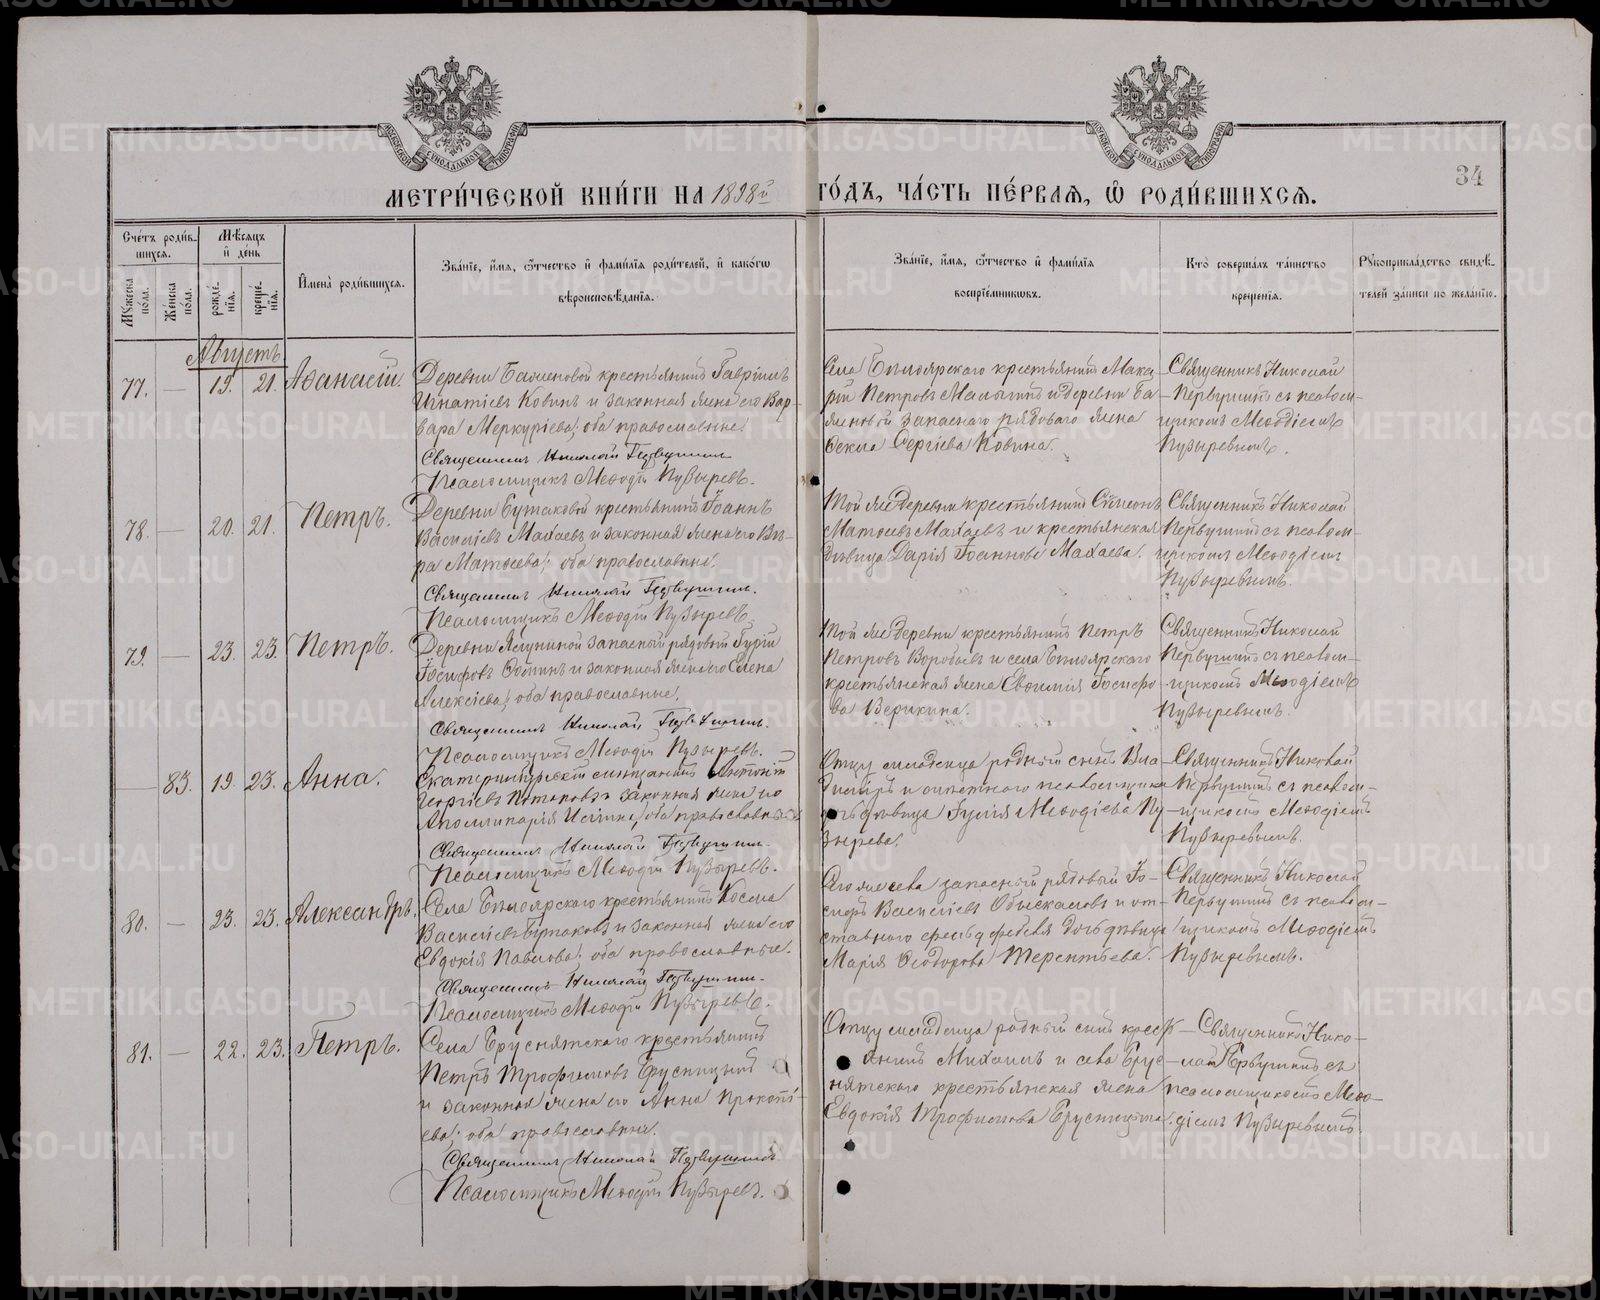 МЕТРИ́ЧЕСКОЙ КНИ́ГИ НА 1898й ГО́ДЪ, ЧА́СТЬ ПЕ́РВАѦ, Ѡ҆ РОДИ́ВШИХСѦ.
34
Сче́тъ роди́в-
шихся.
Мѣ́сяцъ
и҆ де́нь
Мꙋ́жеска
по́ла.
Же́нска
по́ла.
рожде́-
нїя.
креще́-
нїя.
И҆мена̀ роди́вшихся.
Зва́нїе, и҆́мя, ѻ҆́тчество и҆ фами́лїя роди́телей, и҆ како́гѡ
вѣроисповѣ́данїя.
Зва́нїе, и҆́мя, ѻ҆́тчество и҆ фами́лїя
воспрїе́мникѡвъ.
Кто̀ соверша́лъ та́инство
креще́нїя.
Рꙋкоприкла́дство свидѣ́-
телей за́писи по жела́нїю.
Августъ
77. — 19. 21. Аѳанасій.
Деревни Баженовой крестьянинъ Гавріилъ
Игнатіевъ Ковинъ и законная жена его Вар-
вара Меркуріева; оба православные.
Священникъ Николай Первушинъ
Псаломщикъ Меѳодій Пузыревъ.
Села Бѣлоярскаго крестьянинъ Мака-
рій Петровъ Малыгинъ и деревни Ба-
женовой запаснаго рядоваго жена
Ѳекла Сергіева Ковина.
Священникъ Николай
Первушинъ съ псалом-
щикомъ Меѳодіемъ
Пузыревымъ.
78. — 20. 21. Петръ.
Деревни Бутаковой крестьянинъ Іоаннъ
Василіевъ Махаевъ и законная жена его Вѣ-
ра Матѳеева; оба православные.
Священникъ Николай Первушинъ.
Псаломщикъ Меѳодій Пузыревъ.
Той же деревни крестьянинъ Сѵмеонъ
Матѳеевъ Махаевъ и крестьянская
дѣвица Дарія Іоаннова Махаева.
Священникъ Николай
Первушинъ съ псалом-
щикомъ Меѳодіемъ
Пузыревымъ.
79. — 23. 23. Петръ.
Деревни запасный рядовый Гурій
Іосифовъ и законная жена его Елена
Алексіева; оба православные.
Священникъ Николай Первушинъ.
Псаломщикъ Меѳодій Пузыревъ.
Той же деревни крестьянинъ Петръ
Петровъ Воробьевъ и села Бѣлоярскаго
крестьянская жена Евѳимія Іосифо-
ва Верикина.
Священникъ Николай
Первушинъ съ псалом-
щикомъ Меѳодіемъ
Пузыревымъ.
— 83. 19. 23. Анна.
Екатеринбургскій мѣщанинъ Антоній
Георгіевъ Потаповъ и законная жена его
Аполлинарія оба православные
Священникъ Николай Первушинъ.
Псаломщикъ Меѳодій Пузыревъ.
Отцу младенца родный сынъ Вла-
диміръ и псаломщика
дѣвица Іулія Меѳодіева Пу-
зырева.
Священникъ Николай
Первушинъ съ псалом-
щикомъ Меѳодіемъ
Пузыревымъ.
80. — 23. 23. Александръ.
Села Бѣлоярскаго крестьянинъ Косма
Василіевъ Бутаковъ и законная жена его
Евдокія Павлова; оба православные.
Священникъ Николай Первушинъ.
Псаломщикъ Меѳодій Пузыревъ.
Того же села запасный рядовый Іо-
сифъ Василіевъ Обыскаловъ и от-
ставного фельдфебеля дочь дѣвица
Марія Ѳеодорова Терентьева.
Священникъ Николай
Первушинъ съ псалом-
щикомъ Меѳодіемъ
Пузыревымъ.
81. — 22. 23. Петръ.
Села Бруснятскаго крестьянинъ
Петръ Трофимовъ Брусницынъ
и законная жена его Анна Прокопі-
ева; оба православные.
Священникъ Николай Первушинъ
Псаломщикъ Меѳодій Пузыревъ.
Отцу младенца родный сынъ крест-
янинъ Михаилъ и села Брус-
нятскаго крестьянская жена
Евдокія Трофимова Брусницына.
Священникъ Нико-
лай Первушинъ съ
псаломщикомъ Меѳо-
діемъ Пузыревымъ.